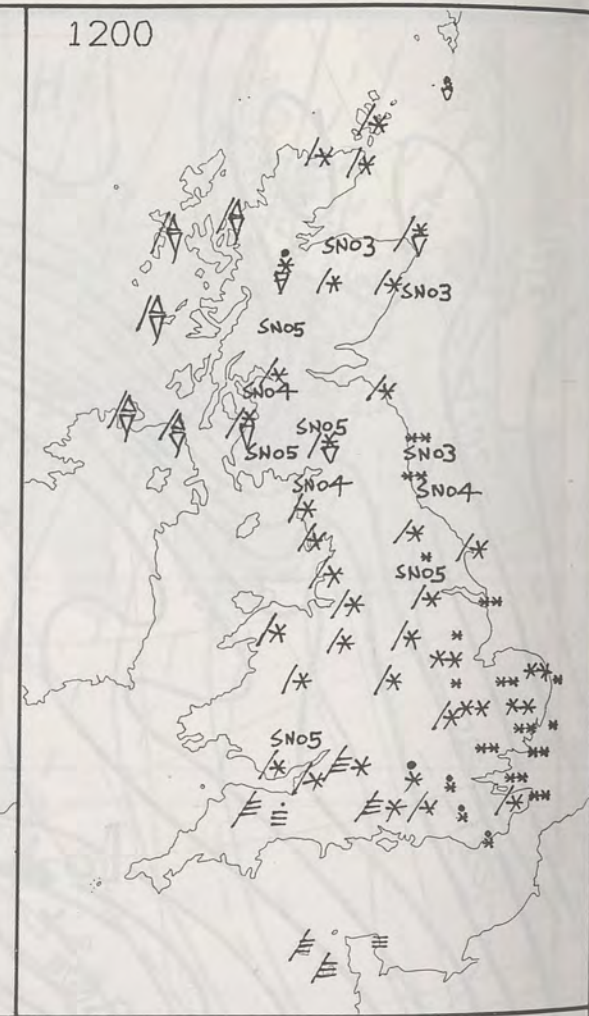 1200
SNO3
SNO3
SNO5
SNO4
SNO5
SNO5
SNO3
SNO4
SNO4
SNO5
SNO5